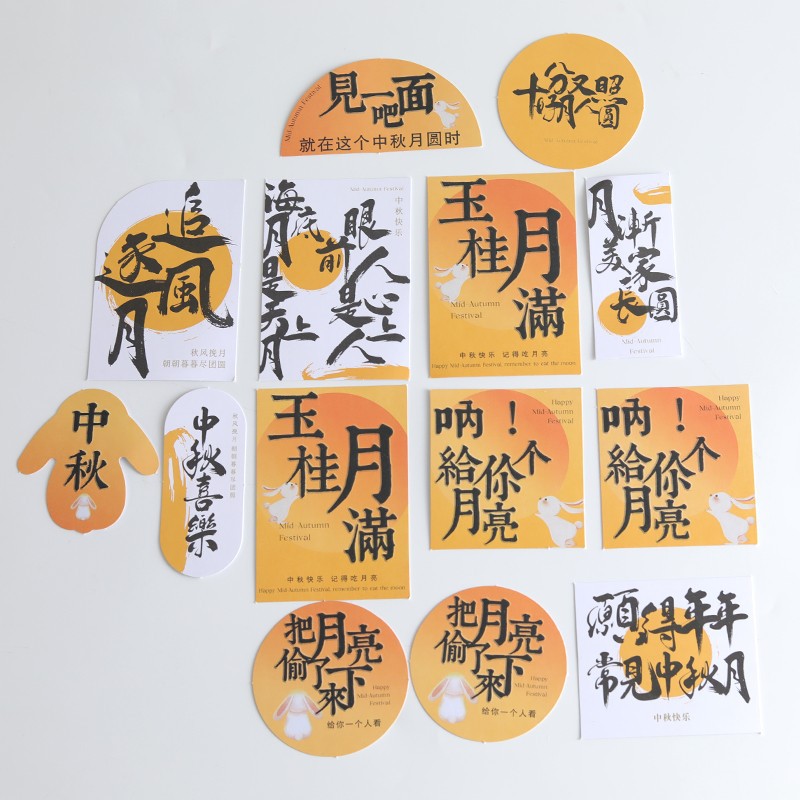 Mid Autumn Festival
見一面吧
就在这个中秋月圆时
十分好月
又照人圓
Mid Autumn Festival
追風
逐月
秋风挽月
朝朝暮暮尽团圆
Mid-Autumn Festival
中秋快乐
海底月是天上月
眼前人是心上人
玉桂月滿
Mid-Autumn
Festival
中秋快乐 记得吃月亮
Happy Mid Autumn Festival, remember to eat the moon
月漸美
家長圓
Mid Autumn
Festival
中秋
中秋喜樂
秋风挽月 朝朝暮暮尽团圆
玉桂月滿
Mid-Autumn
Festival
中秋快乐 记得吃月亮
Happy Mid Autumn Festival, remember to eat the moon
Happy
Mid-Autumn
Festival
吶！
給你个
月亮
Happy
Mid-Autumn
Festival
吶！
給你个
月亮
把月亮
偷了下來
Happy
Mid-Autumn
Festival
给你一个人看
把月亮
偷了下來
Happy
Mid-Autumn
Festival
给你一个人看
願得年年
常見中秋月
中秋快乐